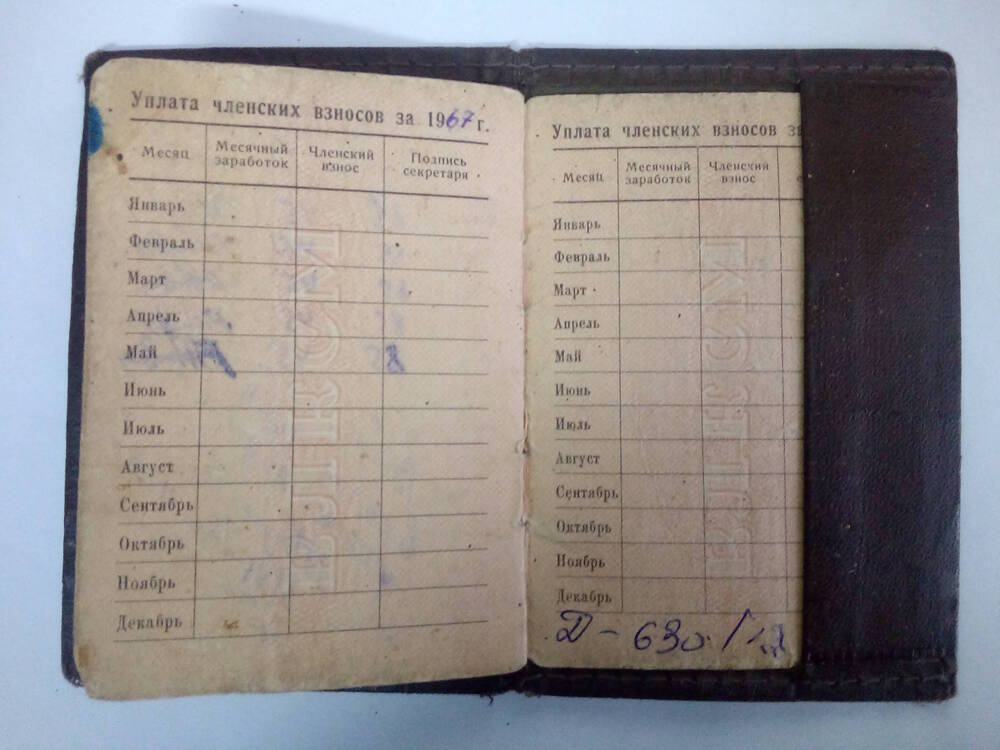 Уплата членских взносов за 1967 г.
Месяц Месячный заработок Членский взнос Подпись секретаря
Январь
Февраль
Март
Апрель
Май
Июнь
Июль
Август
Сентябрь
Октябрь
Ноябрь
Декабрь
Уплата членских взносов
Месяц Месячный заработок Членский взнос
Январь
Февраль
Март
Апрель
Май
Июнь
Июль
Август
Сентябрь
Октябрь
Ноябрь
Декабрь
Д - 630
ВЛКСМ
ВЛКСМ